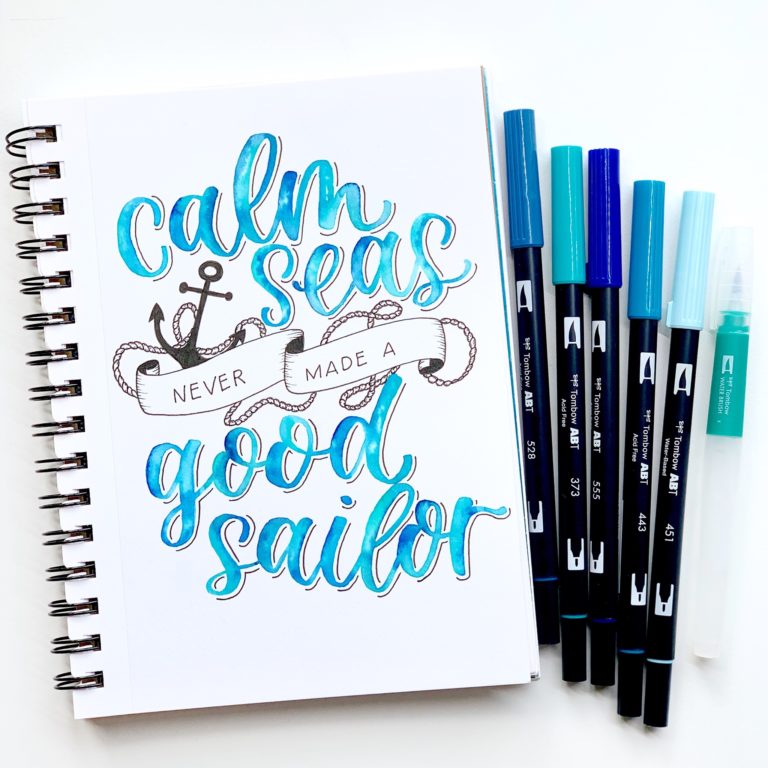 calm
seas
NEVER MADE A
good
sailor
Tombow ABT
528
Tombow ABT
Acid Free
373
Tombow ABT
555
Tombow ABT
Acid Free
443
Tombow ABT
Water-Based
451
Tombow
WATER BRUSH